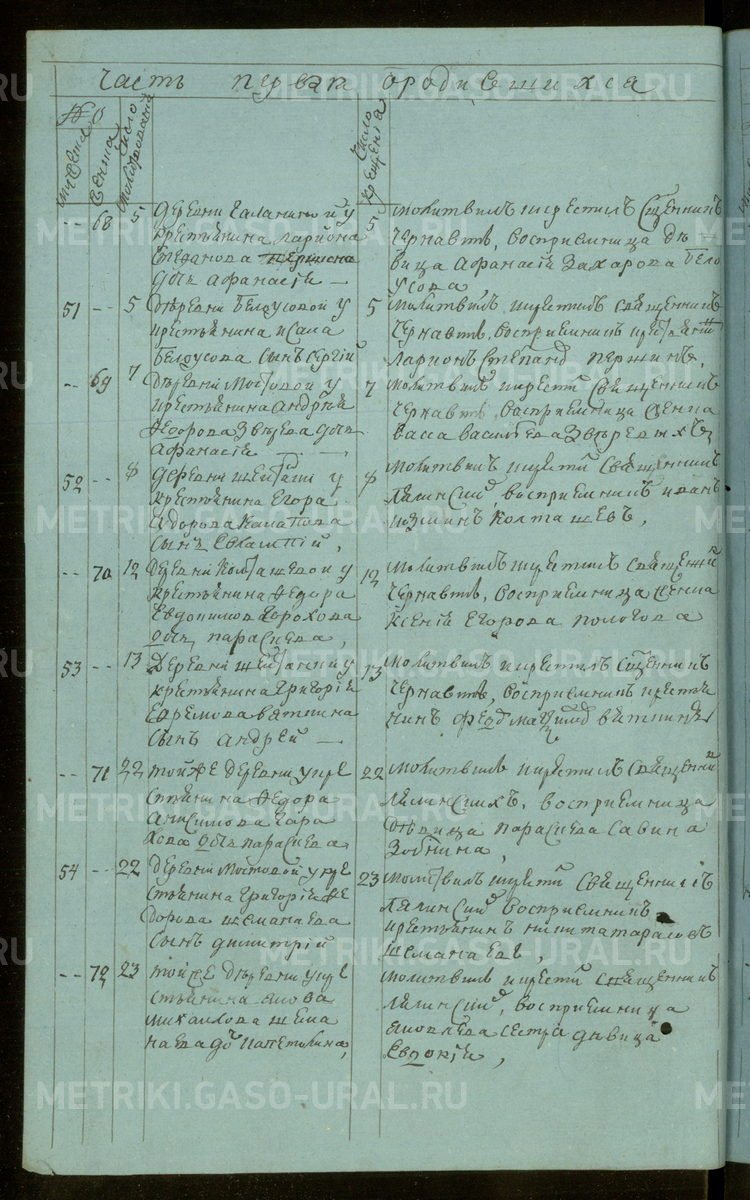 Часть перваѧ ородившихсѧ
№ О
мужеска
женска
Число рождения
Число крещения
-- 68 5 Деревни Галанино й у
крестьянина Лариона
Степанова
дочь Афанасiѧ —
5 Молитвилъ икрестилъ Сщенникъ
Чернавтъ, восприемница дѣ
вица Афанасiѧ Захарова Бело
усова,
51 -- 5 Деревни Белоусовой у
крестьянина Исака
Белоусова сынъ Сергiй
5 Молитвилъ икрестилъ Священникъ
Чернавтъ, восприемникъ
Ларионъ Степанд Першинъ,
-- 69 7 Деревни Мостовой у
крестьянина Андрѣѧ
Федорова Звѣрева дочь
Афанасiѧ
7 Молитвилъ икрести Священникъ
Чернавтъ, восприемница Женка
Васса Васильева Звѣревыхъ
52 -- 8 Деревни Шейташи у
крестьянина Егора
Сынъ Евлампiй,
8 Молитвилъ икрести Священникъ
Лялинскiй, восприемникъ Иванъ
Козминъ Колташевъ,
-- 70 12 Деревни Колташевой у
крестьянина Федора
Евдокимова Горохова
дочь Параскева,
12 Молитвилъ икрестилъ Священнй
Чернавтъ, восприемница Женка
Ксенiѧ Егорова Пологова
53 -- 13 Деревни Шейтанки у
крестьянина Григорiѧ
Ефремова Вяткина
Сынъ Андрей —
13 Молитвилъ икрестилъ Сщенникъ
Чернавтъ, восприемникъ крестьѧ
нинъ Вяткинъ
-- 71 22 Тойже деревни укре
стьянина Федора
Анисимова Гора
хова дочь Параскева
22 Молитвилъ икрестилъ Священнй
Лялинскихъ, восприемница
Девица Параскева Савина
Зобнина,
54 -- 22 Деревни Мостовой укре
стьянина Григорiѧ Фе
дорова Шеманаева
Сынъ Димитрiй
23 Молитвилъ икрести Священникъ
Лялинскiй восприемникъ
крестьянинъ Никита Тарасовъ
Шеманаевъ,
-- 72 23 Тойже деревни укре
стьянина Якова
Михаилова Шема
наева до Капетолина,
23 Молитвилъ икрести Священникъ
Лялинскiй, восприемница
Яковлева сестра девица
Евдокiѧ,
METRIKI.GASO-URAL.RU